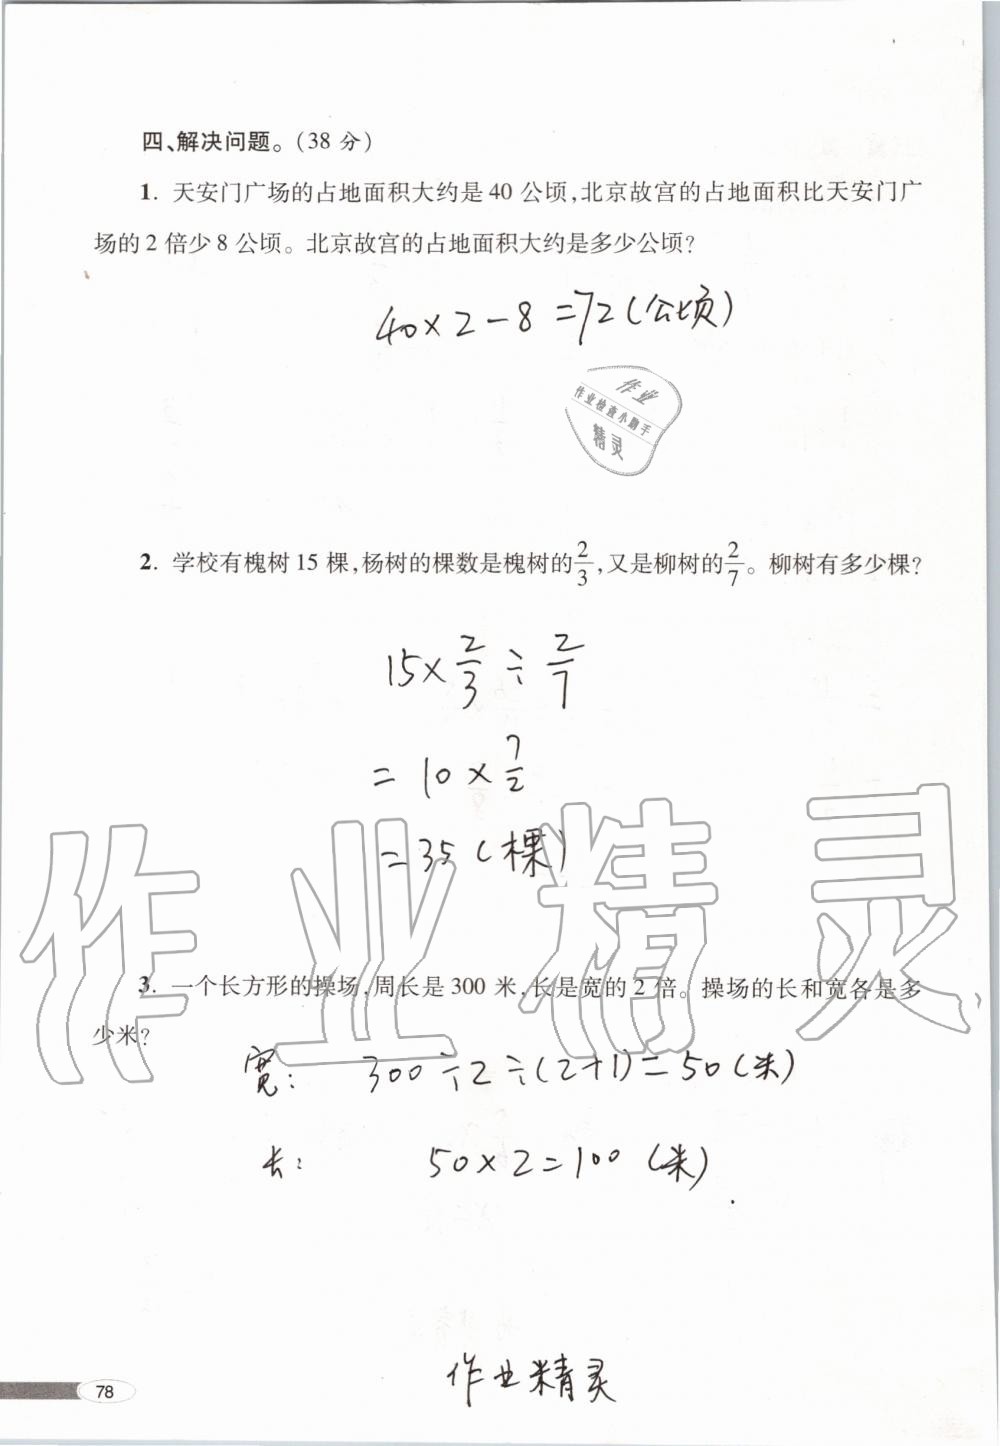 四、解决问题。(38 分)
1. 天安门广场的占地面积大约是 40 公顷,北京故宫的占地面积比天安门广
场的 2 倍少 8 公顷。北京故宫的占地面积大约是多少公顷?
40×2-8=72(公顷)
作业
作业检查小助手
精灵
2. 学校有槐树 15 棵,杨树的棵数是槐树的2/3,又是柳树的2/7。柳树有多少棵?
15×2/3÷2/7
=10×7/2
=35(棵)
作业精灵
3. 一个长方形的操场,周长是 300 米,长是宽的 2 倍。操场的长和宽各是多
少米?
宽: 300÷2÷(2+1)=50(米)
长: 50×2=100(米)
作业精灵
78